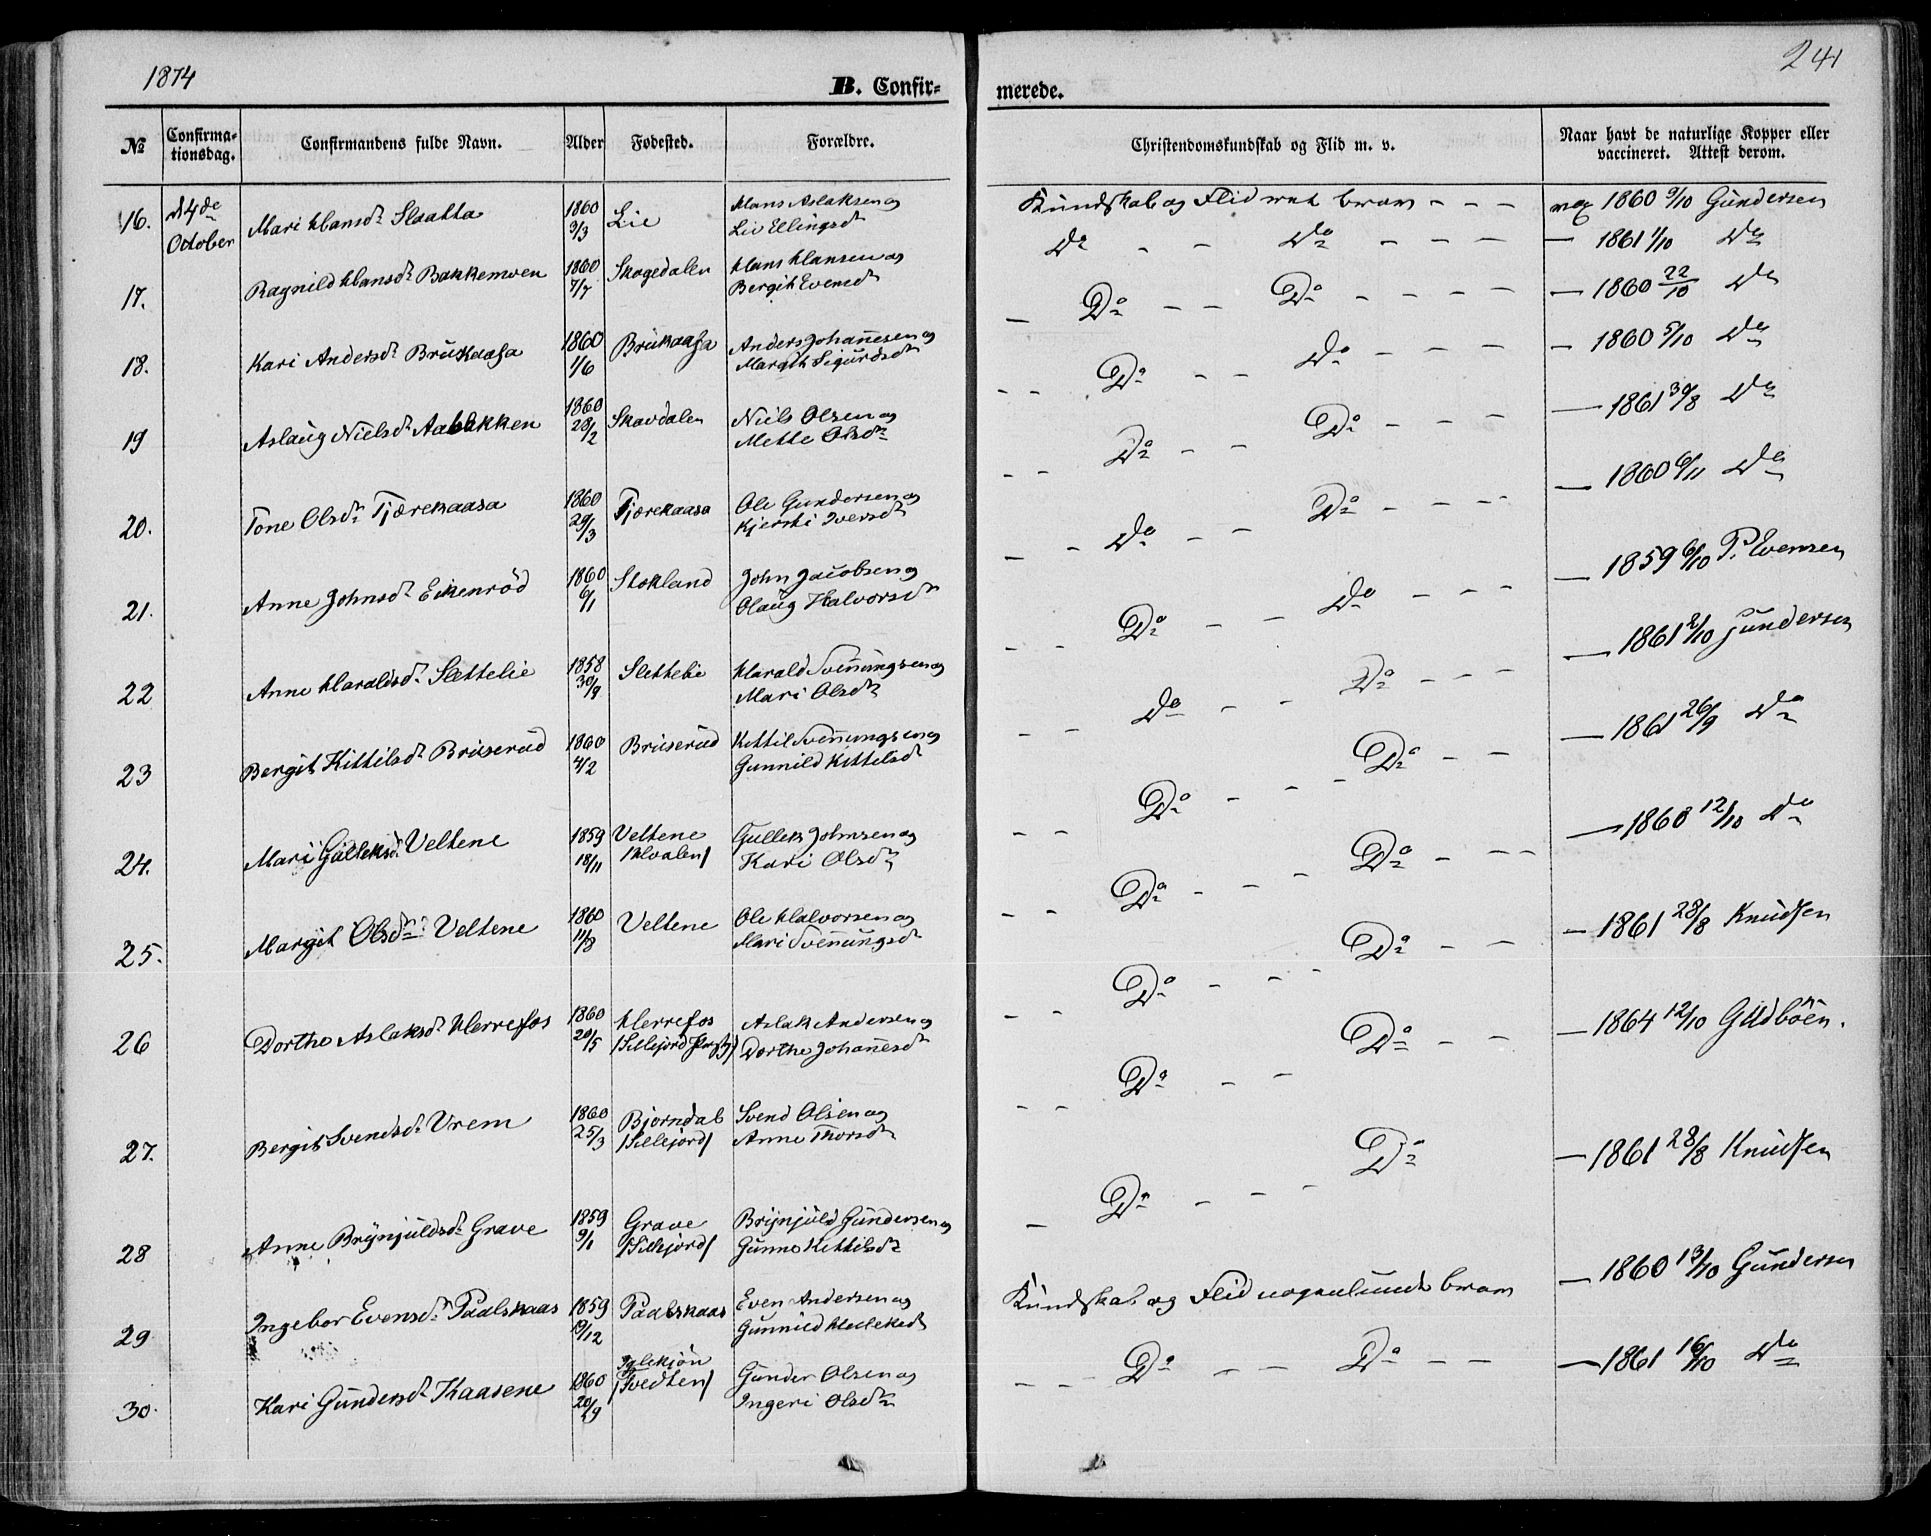 1874
B. Confir-
merede.
241
No
Confirma-
tionsdag.
Confirmandens fulde Navn.
Alder
Fødested.
Forældre.
Christendomskundskab og Flid m. v.
Naar havt de naturlige Kopper eller
vaccineret. Attest derom.
16. d 4de October Mari Hansdr Slaatta 1860 9/3 Lie Hans Aslaksen og Liv Ellingsdr Kundskab og Flid met bram - - - vax 1860 9/10 Gundersen
17. Ragnild Hansdr Bakkemoen 1860 7/7 Skogedalen Hans Hansen og Bergit Evensdr Do - - Do - - - — 1861 1/10 Do
18. Kari Andersdr Brukaasa 1860 1/6 Brukaasa Anders Johannesen og Margit Sigurdsdr - Do - - Do - - - - — 1860 22/10 Do
19 Aslaug Nielsdr Aabakken 1860 28/2 Skavdalen Niels Olsen og Mette Olsdr - - Do - - Do - - - — 1860 5/10 Do
20. Tone Olsdr Tjærekaasa 1860 29/3 Tjærekaasa Ole Gundersen og Kjersti Iversdr - - Do - - Do - - — 1861 30/8 Do
21. Anne Johnsdr Eikenrød 1860 6/1 Stokland John Jacobsen og Olaug Halvorsdr - - Do - - Do - - - — 1860 6/11 Do
22 Anne Haraldsdr Slettelie 1858 30/9 Slettelie Harald Svenungsen og Mari Olsdr - - Do - - Do - - - — 1859 6/10 P. Evensen
23 Bergit Kittilsdr Bruserud 1860 4/2 Bruserud Kittil Svenungsen og Gunnild Kittelsdr - - Do - - Do - - - — 1861 2/10 Gundersen
24. Mari Gulleksdr Veltene 1859 18/11 Veltene /Hvalen/ Gullek Johnsen og Kari Olsdr - - Do - - - Do - - — 1861 26/9 Do
25. Margit Olsdr Veltene 1860 11/8 Veltene Ole Halvorsen og Mari Svenungsdr - - Do - - - Do - - - — 1860 12/10 Do
26 Dorthe Aslaksdr Herrefos 1860 20/5 Herrefos Aslak Andersen og Dorthe Johannesdr - - Do - - - Do - - — 1861 28/8 Knudsen
27. Bergit Svendsdr Vrem 1860 25/3 Bjørndal /Sillejord/ Svend Olsen og Anne Thorsdr - - Do - - Do - - — 1864 12/10
28 Anne Brynjuldsdr Grave 1859 9/1 Grave /Sillejord/ Brynjuld Gundersen og Gunne Kittilsdr - Do - - - Do — 1861 28/8 Knudsen
29 Ingebor Evensdr Paalskaas 1859 19/12 Paalskaas Even Andersen og Gunnild Kundskab og Flid nogenlunde bram — 1860 13/10 Gundersen
30. Kari Gundersdr Kaasene 1860 20/9 /Svedten/ Gunder Olsen og Ingeri Olsdr - - - Do - - Do - - — 1861 16/10 Do